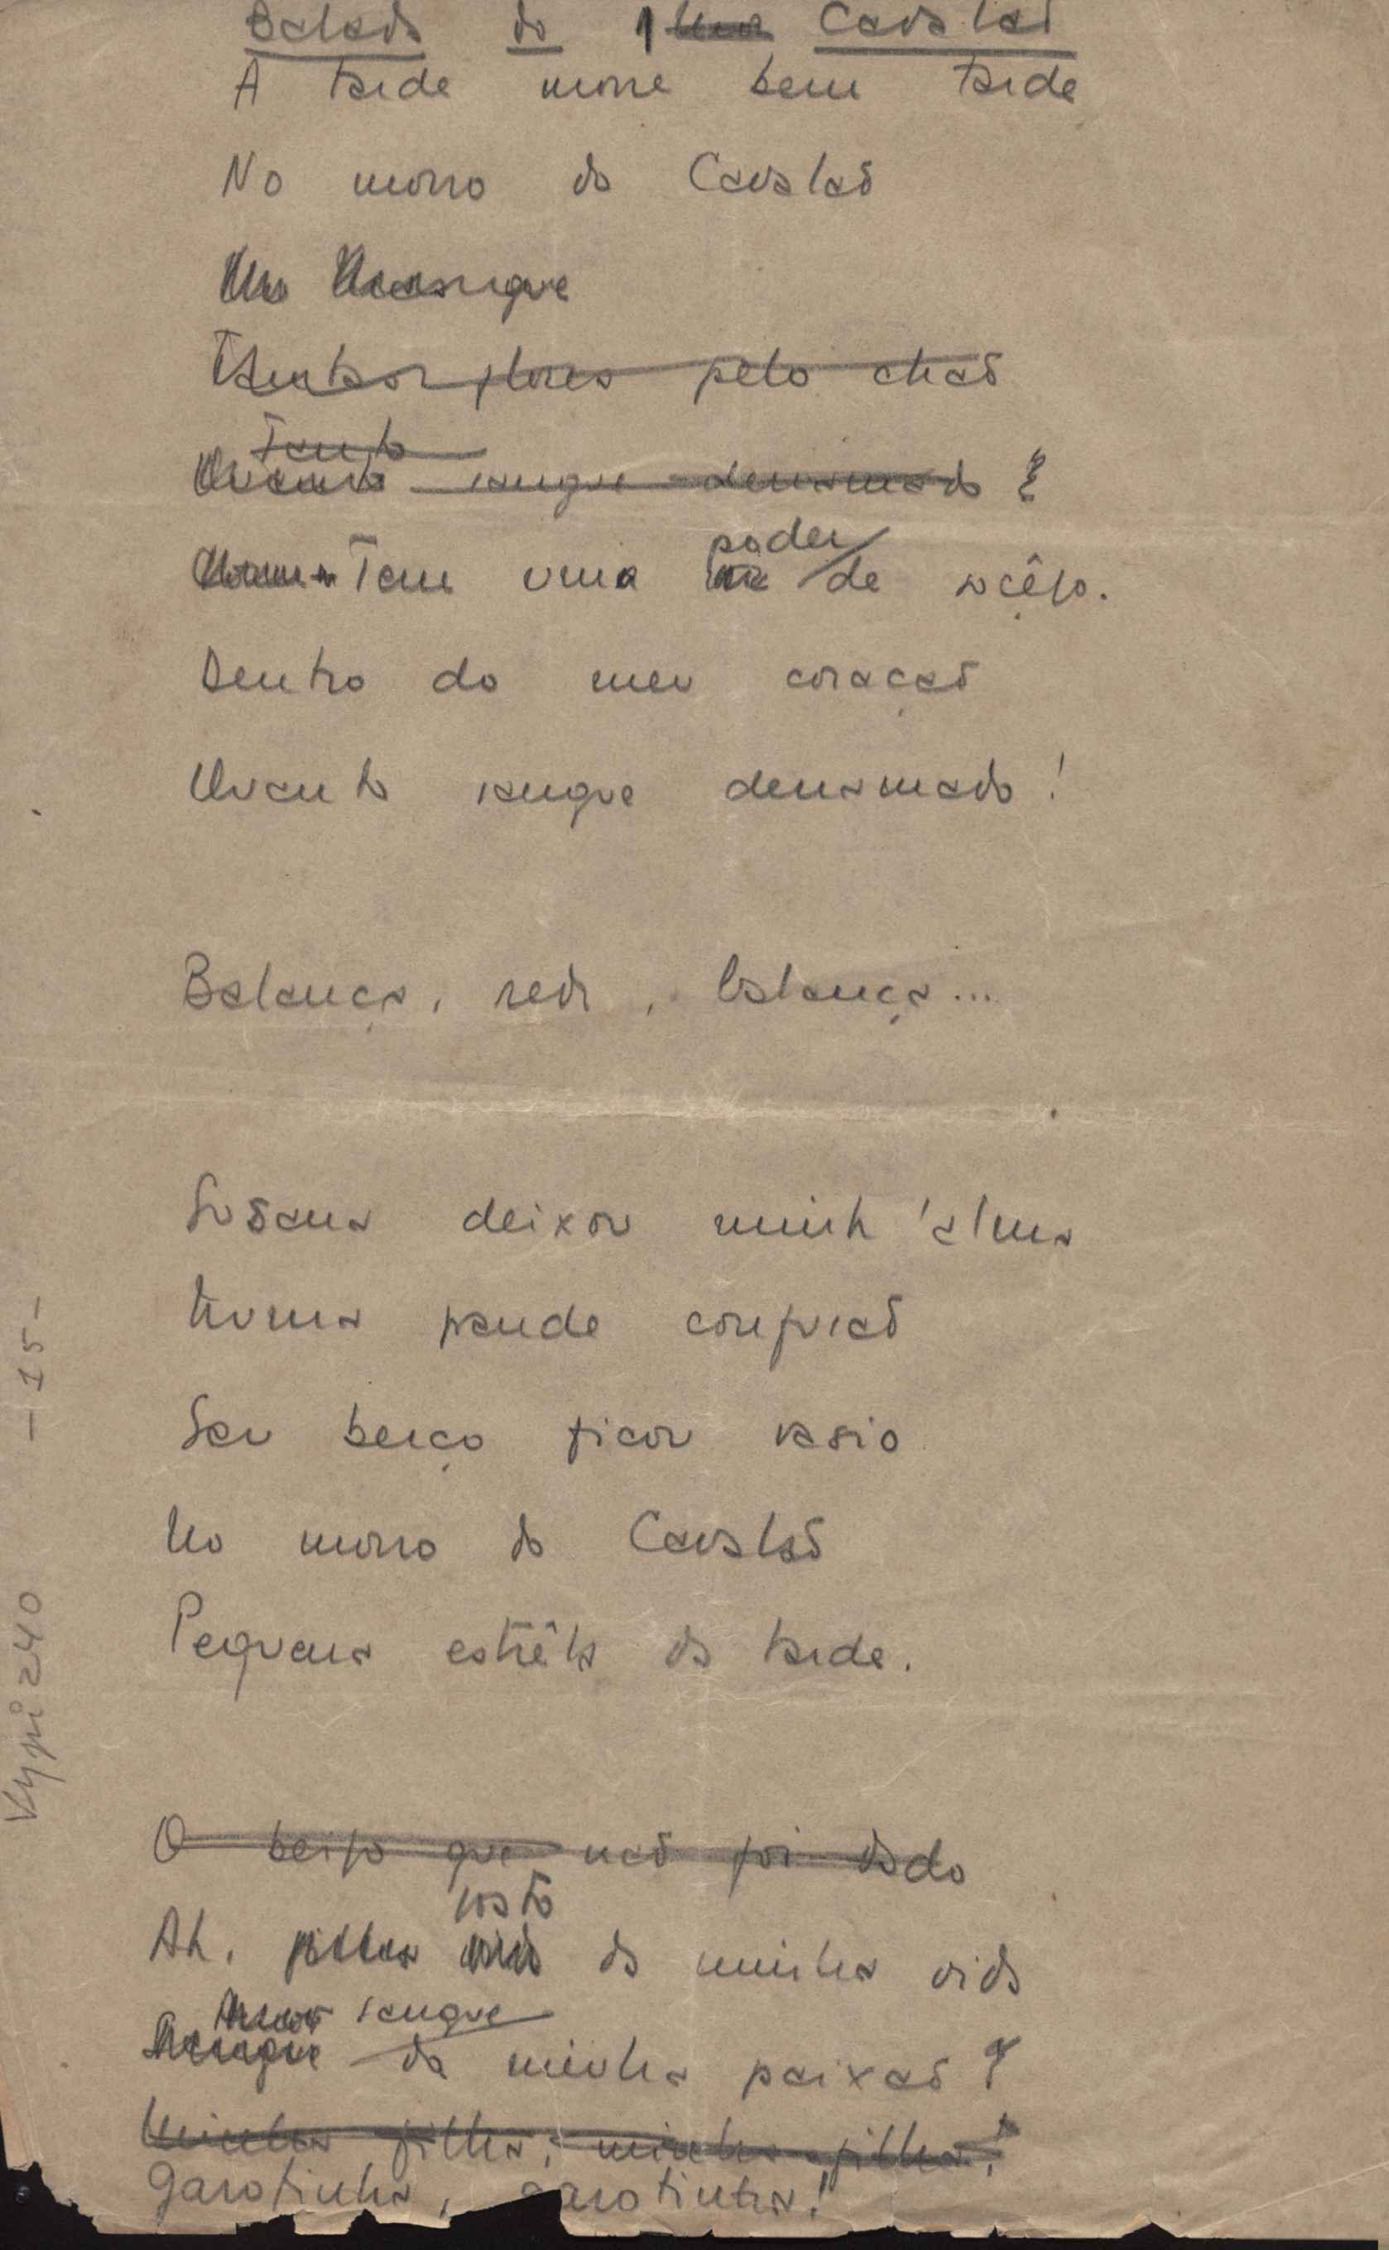 Balada do Cavalão
A tarde morre bem tarde
No morro do Cavalão
sangue
flores pelo chão
Tanto
Quanto sangue derramado?
poder
Tem um de sossêgo.
Dentro do meu coração
Quanto sangue derramado!
Balança, rede, balança...
Susana deixou minh'alma
Numa grande confusão
Seu berço ficou vasio
No morro do Cavalão
Pequena estrêla da tarde.
O beijo que não foi dado
Ah, filha da minha vida
sangue
da minha paixão!
Minha filha, minha filha!
Garotinha, garotinha!
-15-
Vypi240